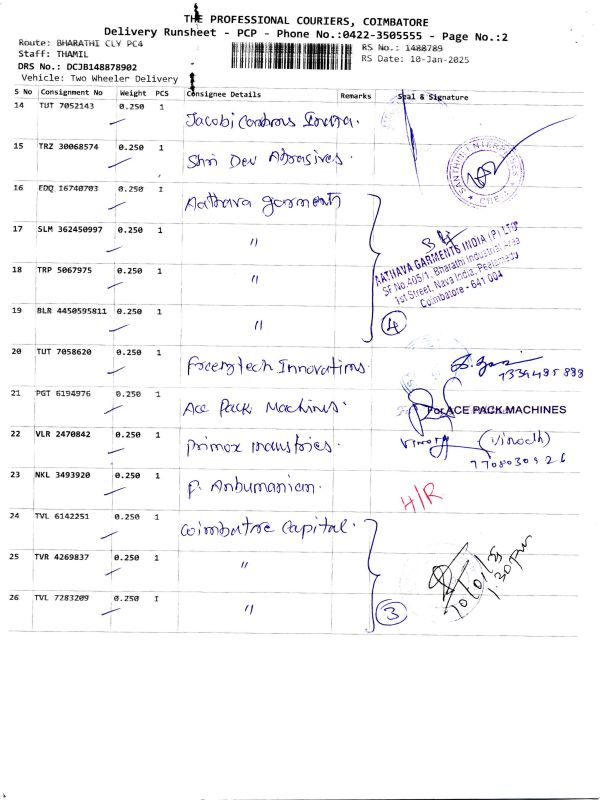 THE PROFESSIONAL COURIERS, COIMBATORE
Delivery Runsheet - PCP - Phone No.:0422-3505555 - Page No.:2
Route: BHARATHI CLY PC4
RS No.: 1488789
Staff: THAMIL
RS Date: 10-Jan-2025
DRS No.: DCJB148878902
Vehicle: Two Wheeler Delivery
S No Consignment No Weight PCS Consignee Details Remarks Seal & Signature
14 TUT 7052143 0.250 1
Jacobi Carbons India.
15 TRZ 30068574 0.250 1
Shri Dev Abrasives.
SANTHINI ENTERPRISES
CBE-5
16 EDQ 16740703 0.250 1 Aathava garments
17 SLM 362450997 0.250 1
"
AATHAVA GARMENTS INDIA (P) LTD
SF No.405/1, Bharathi Industrial Area
1st Street, Nava India, Peelamedu
Coimbatore - 641 004
18 TRP 5067975 0.250 1
"
19 BLR 4450595811 0.250 1
"
4
20 TUT 7058620 0.250 1
Freezytech Innovations.
7339485888
21 PGT 6194976 0.250 1
Ace Pack Machines.
For ACE PACK MACHINES
22 VLR 2470842 0.250 1
Primox Industries.
(Vinodh)
7708030926
23 NKL 3493920 0.250 1
P. Anbumaniam.
H/R
24 TVL 6142251 0.250 1
Coimbatore Capital.
25 TVR 4269837 0.250 1
"
10/01/25
1.30pm
26 TVL 7283209 0.250 1
"
3